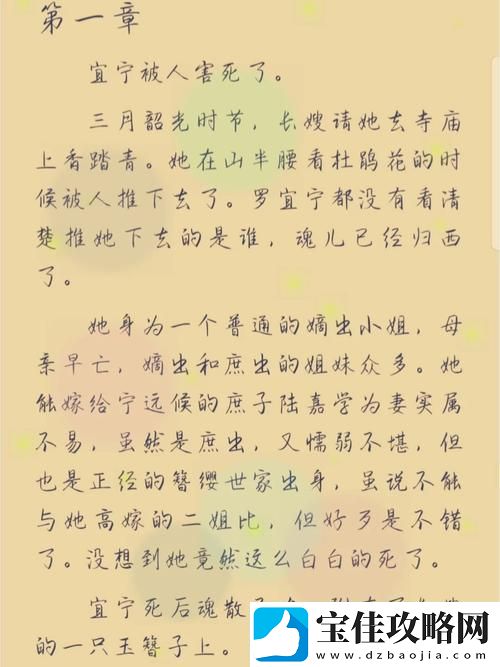 第一章
宜宁被人害死了。
三月韶光时节，长嫂请她去寺庙
上香踏青。她在山半腰看杜鹃花的时
候被人推下去了。罗宜宁都没有看清
楚推她下去的是谁，魂儿已经归西
了。
她身为一个普通的嫡出小姐，母
亲早亡，嫡出和庶出的姐妹众多。她
能嫁给宁远候的庶子陆嘉学为妻实属
不易，虽然是庶出，又懦弱不堪，但
也是正经的簪缨世家出身，虽说不能
与她高嫁的二姐比，但好歹是不错
了。没想到她竟然这么白白的死了。
宜宁死后魂散
的一只玉簪子上。
宝佳攻略网
www.dzbaojia.com